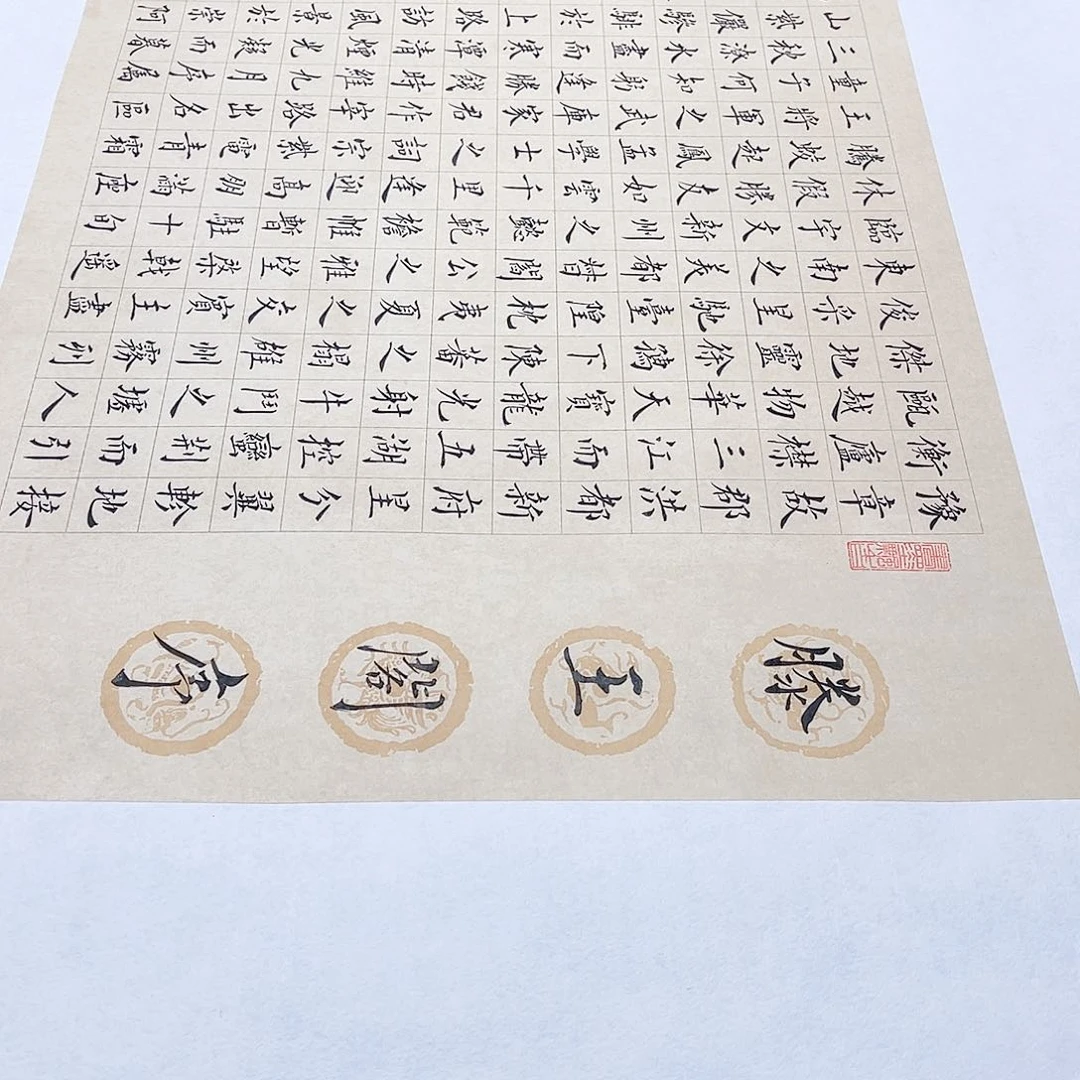 滕王閣序
豫章故郡洪都新府星分翼軫地接
衡廬襟三江而帶五湖控蠻荊而引
甌越物華天寶龍光射牛鬥之墟人
傑地靈徐孺下陳蕃之榻雄州霧列
俊采星馳臺隍枕夷夏之交賓主盡
東南之美都督閻公之雅望棨戟遙
臨宇文新州之懿範襜帷暫駐十旬
休假勝友如雲千里逢迎高朋滿座
騰蛟起鳳孟學士之詞宗紫電青霜
王將軍之武庫家君作宰路出名區
童子何知躬逢勝餞時維九月序屬
三秋潦水盡而寒潭清煙光凝而暮
山紫儼驂騑於上路訪風景於崇阿